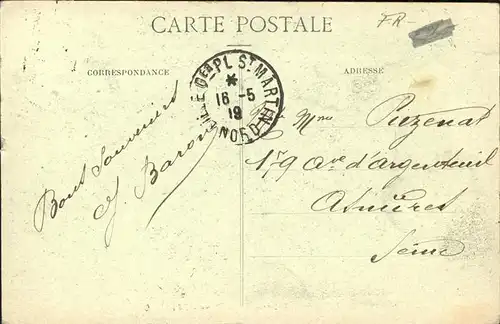 CARTE POSTALE
FR-
CORRESPONDANCE
ADRESSE
LILLE Gde PL. ST MARTIN
*
16 -5
19
NORD
Bons Souvenirs
J. Baron
Mme Puzenat
179 Ave d'Argenteuil
Asnières
Seine